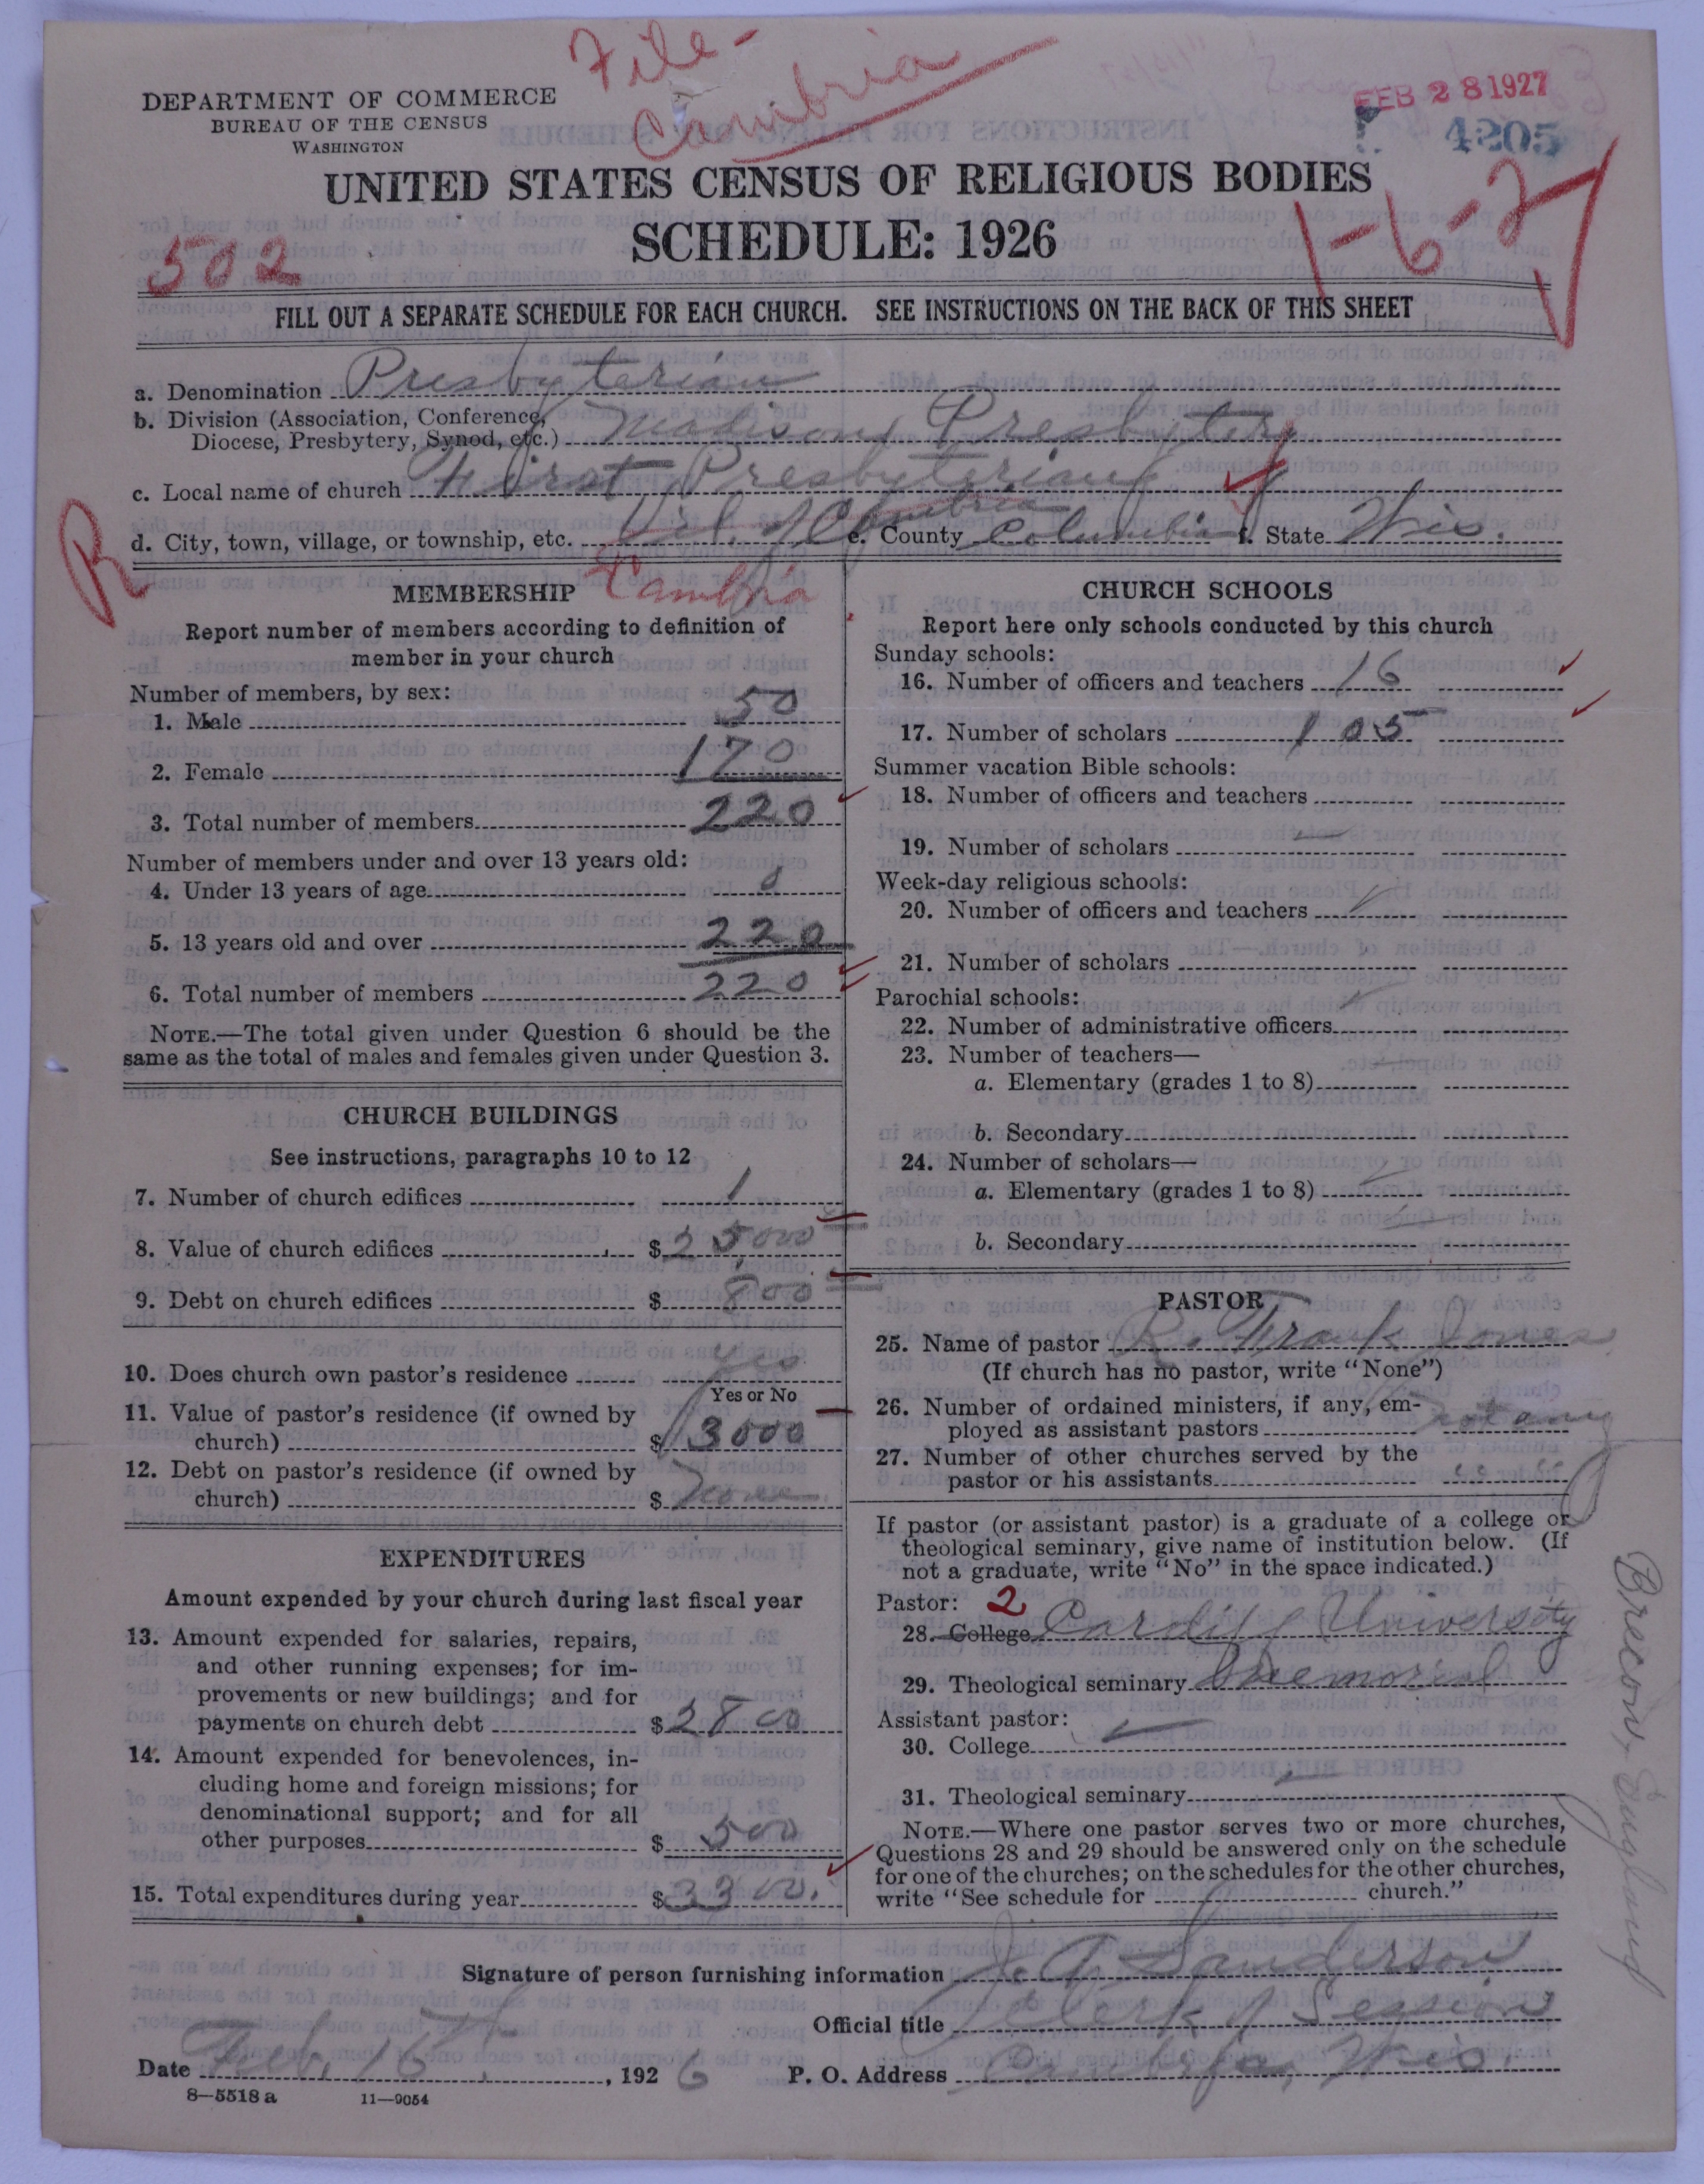 File-
Cambria
DEPARTMENT OF COMMERCE
BUREAU OF THE CENSUS
WASHINGTON
FEB 28 1927
4205
UNITED STATES CENSUS OF RELIGIOUS BODIES
SCHEDULE: 1926
502
1-6-2
FILL OUT A SEPARATE SCHEDULE FOR EACH CHURCH. SEE INSTRUCTIONS ON THE BACK OF THIS SHEET
a. Denomination Presbyterian
b. Division (Association, Conference,
Diocese, Presbytery, Synod, etc.) Madison Presbytery
c. Local name of church First Presbyterian
R
d. City, town, village, or township, etc. Vil. of Cambria e. County Columbia f. State Wis.
Cambria
MEMBERSHIP
Report number of members according to definition of
member in your church
Number of members, by sex:
1. Male 50
2. Female 170
3. Total number of members 220
Number of members under and over 13 years old:
4. Under 13 years of age 0
5. 13 years old and over 220
6. Total number of members 220
NOTE.—The total given under Question 6 should be the
same as the total of males and females given under Question 3.
CHURCH BUILDINGS
See instructions, paragraphs 10 to 12
7. Number of church edifices 1
8. Value of church edifices $25000
9. Debt on church edifices $800
10. Does church own pastor's residence Yes
Yes or No
11. Value of pastor's residence (if owned by
church) $3000
12. Debt on pastor's residence (if owned by
church) $None
EXPENDITURES
Amount expended by your church during last fiscal year
13. Amount expended for salaries, repairs,
and other running expenses; for im-
provements or new buildings; and for
payments on church debt $2800
14. Amount expended for benevolences, in-
cluding home and foreign missions; for
denominational support; and for all
other purposes $500
15. Total expenditures during year $3300.
CHURCH SCHOOLS
Report here only schools conducted by this church
Sunday schools:
16. Number of officers and teachers 16
17. Number of scholars 105
Summer vacation Bible schools:
18. Number of officers and teachers
19. Number of scholars
Week-day religious schools:
20. Number of officers and teachers
21. Number of scholars
Parochial schools:
22. Number of administrative officers
23. Number of teachers—
a. Elementary (grades 1 to 8)
b. Secondary
24. Number of scholars—
a. Elementary (grades 1 to 8)
b. Secondary
PASTOR
25. Name of pastor R. Frank Jones
(If church has no pastor, write "None")
26. Number of ordained ministers, if any, em-
ployed as assistant pastors not any
27. Number of other churches served by the
pastor or his assistants " "
If pastor (or assistant pastor) is a graduate of a college or
theological seminary, give name of institution below. (If
not a graduate, write "No" in the space indicated.)
Pastor: 2
28. College Cardiff University
29. Theological seminary Memorial
Brecon, England
Assistant pastor:
30. College
31. Theological seminary
NOTE.—Where one pastor serves two or more churches,
Questions 28 and 29 should be answered only on the schedule
for one of the churches; on the schedules for the other churches,
write "See schedule for church."
Signature of person furnishing information J. A. Sanderson
Official title Clerk of Session
Date Feb. 16, 1926 P. O. Address Cambria, Wis.
8—5518 a 11—9054